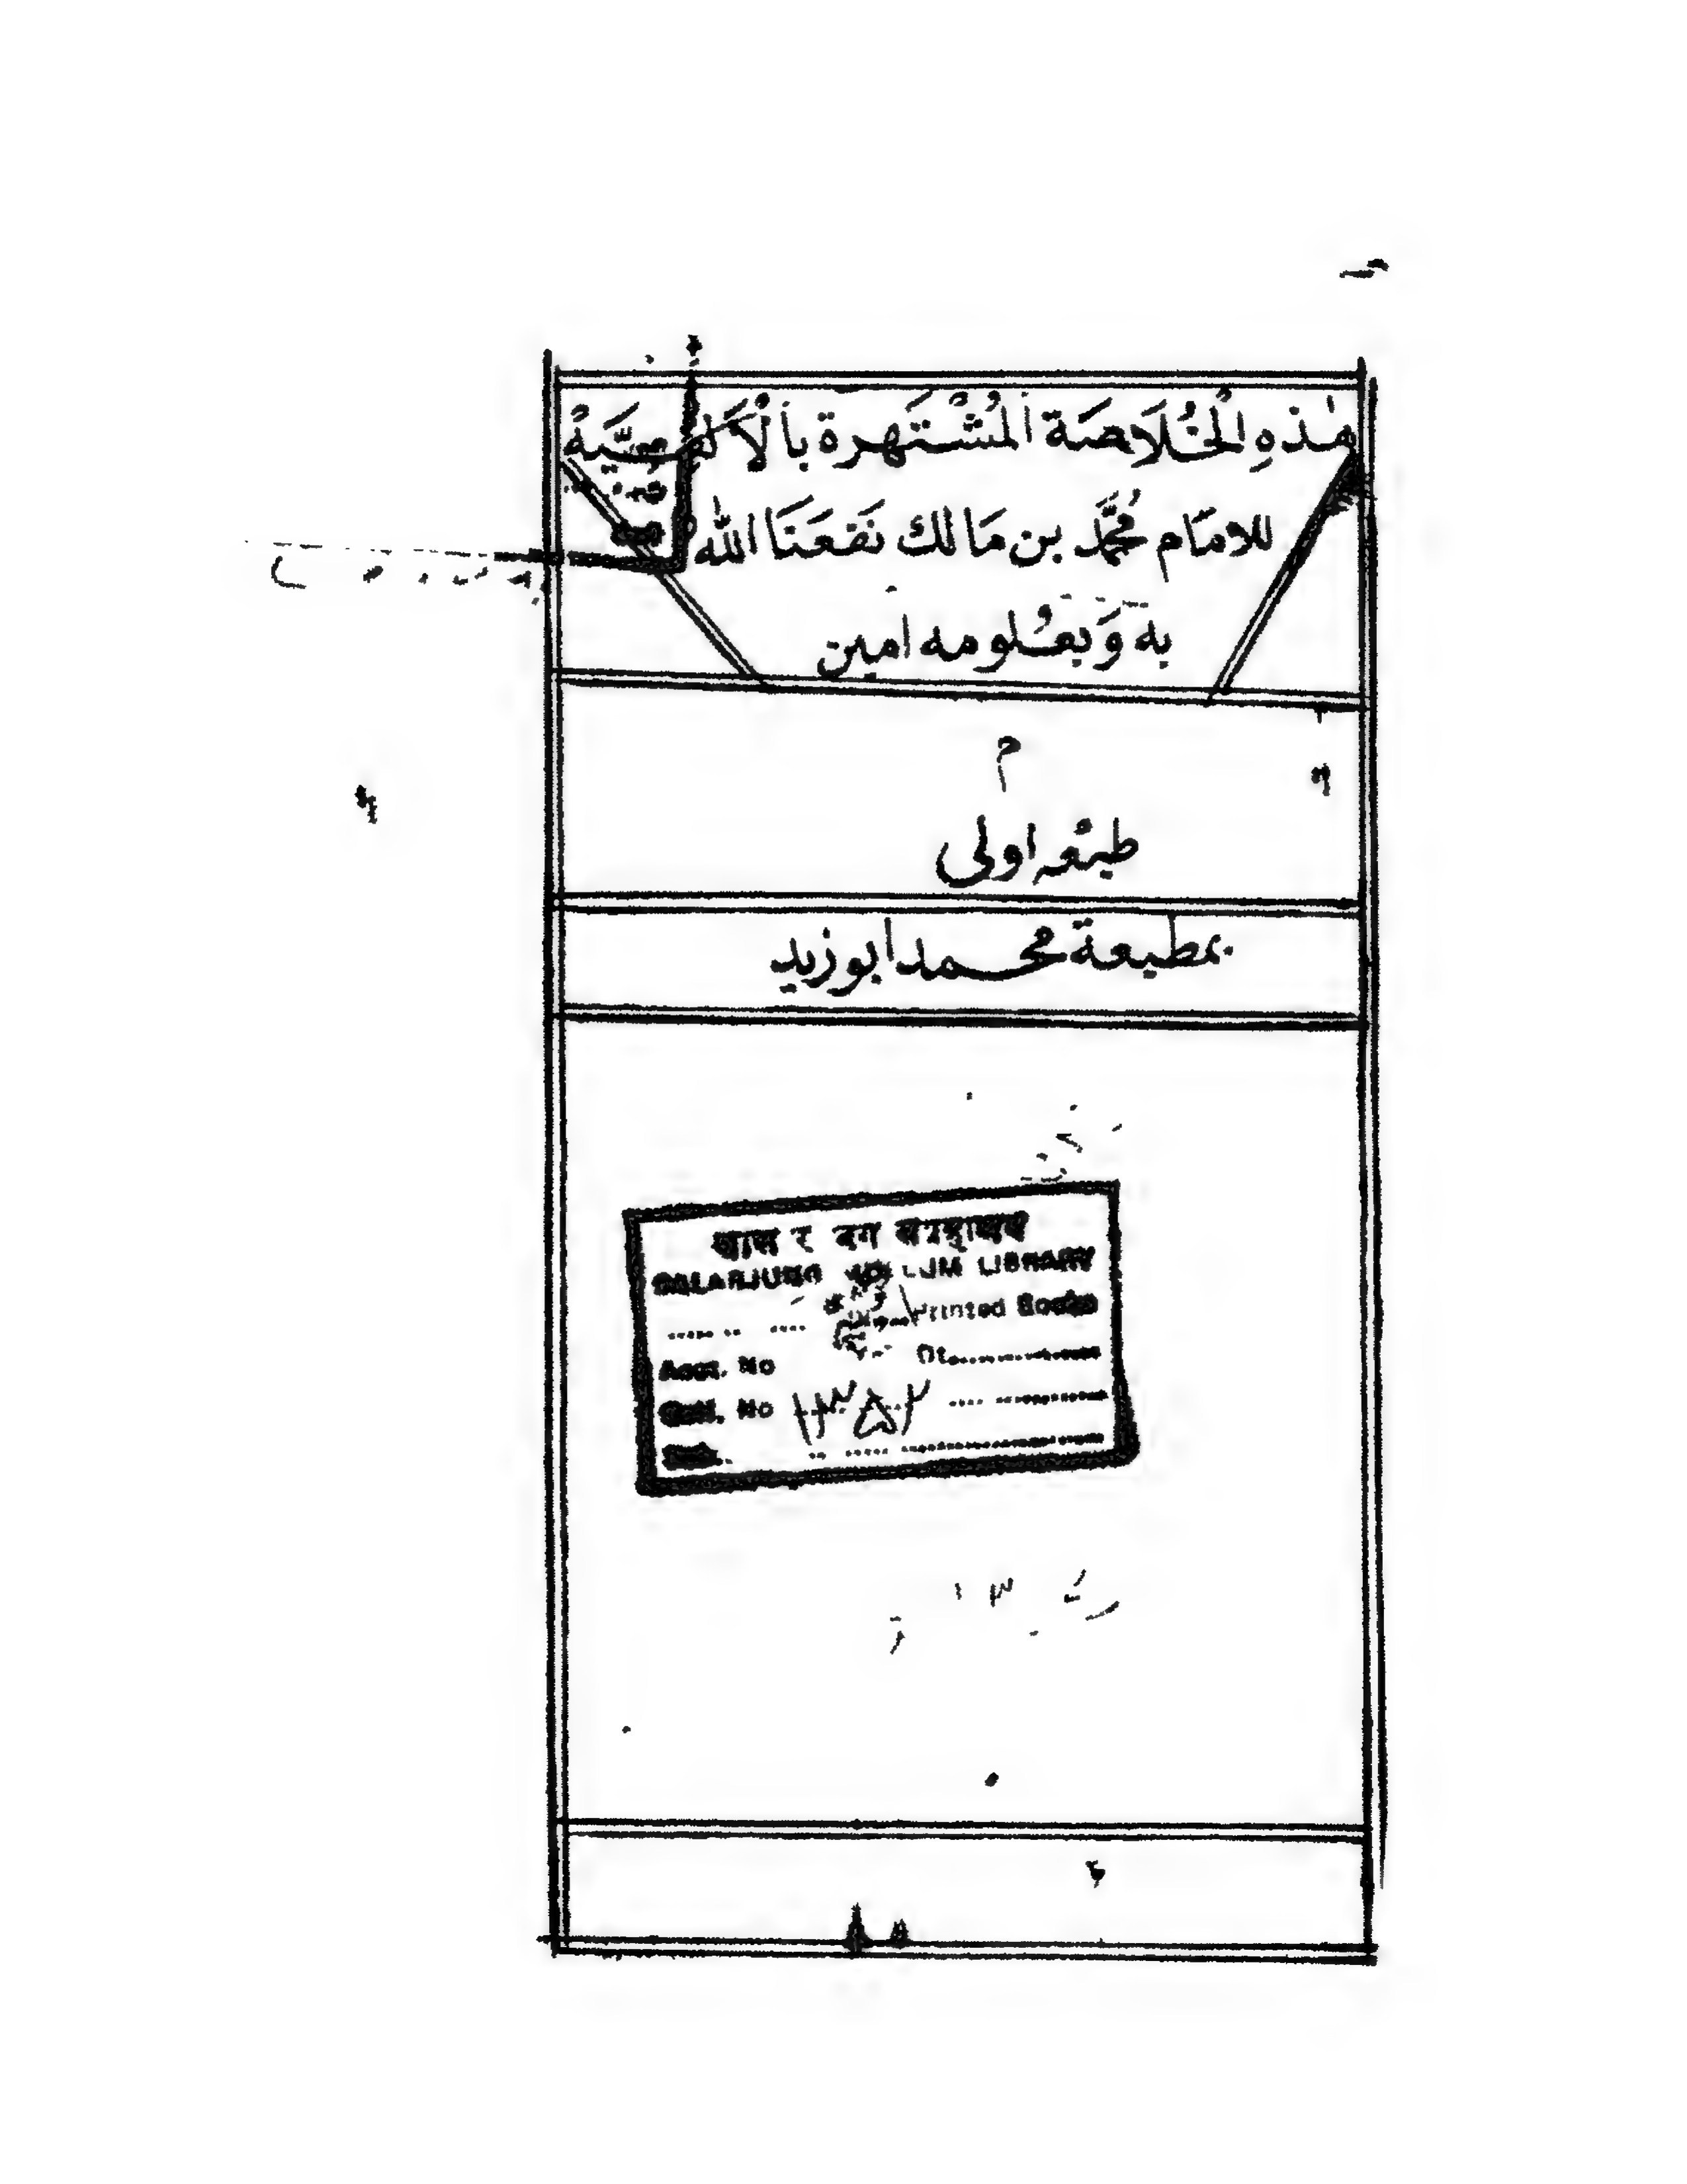 هٰذهِ الْخُلَاصَة الْمُشْتَهرة بالْاَلفيَّيهْ
للامَام مُحَمَّد بن مَالك نَفعَنَا اللّٰه
به وَبعُلومه امين
م
طبعه اولى
بمطبعة محمد ابوزيد
SALARJUNG LIBRARY
Printed Books
Accr. No Dt.
No ١٣٥٢